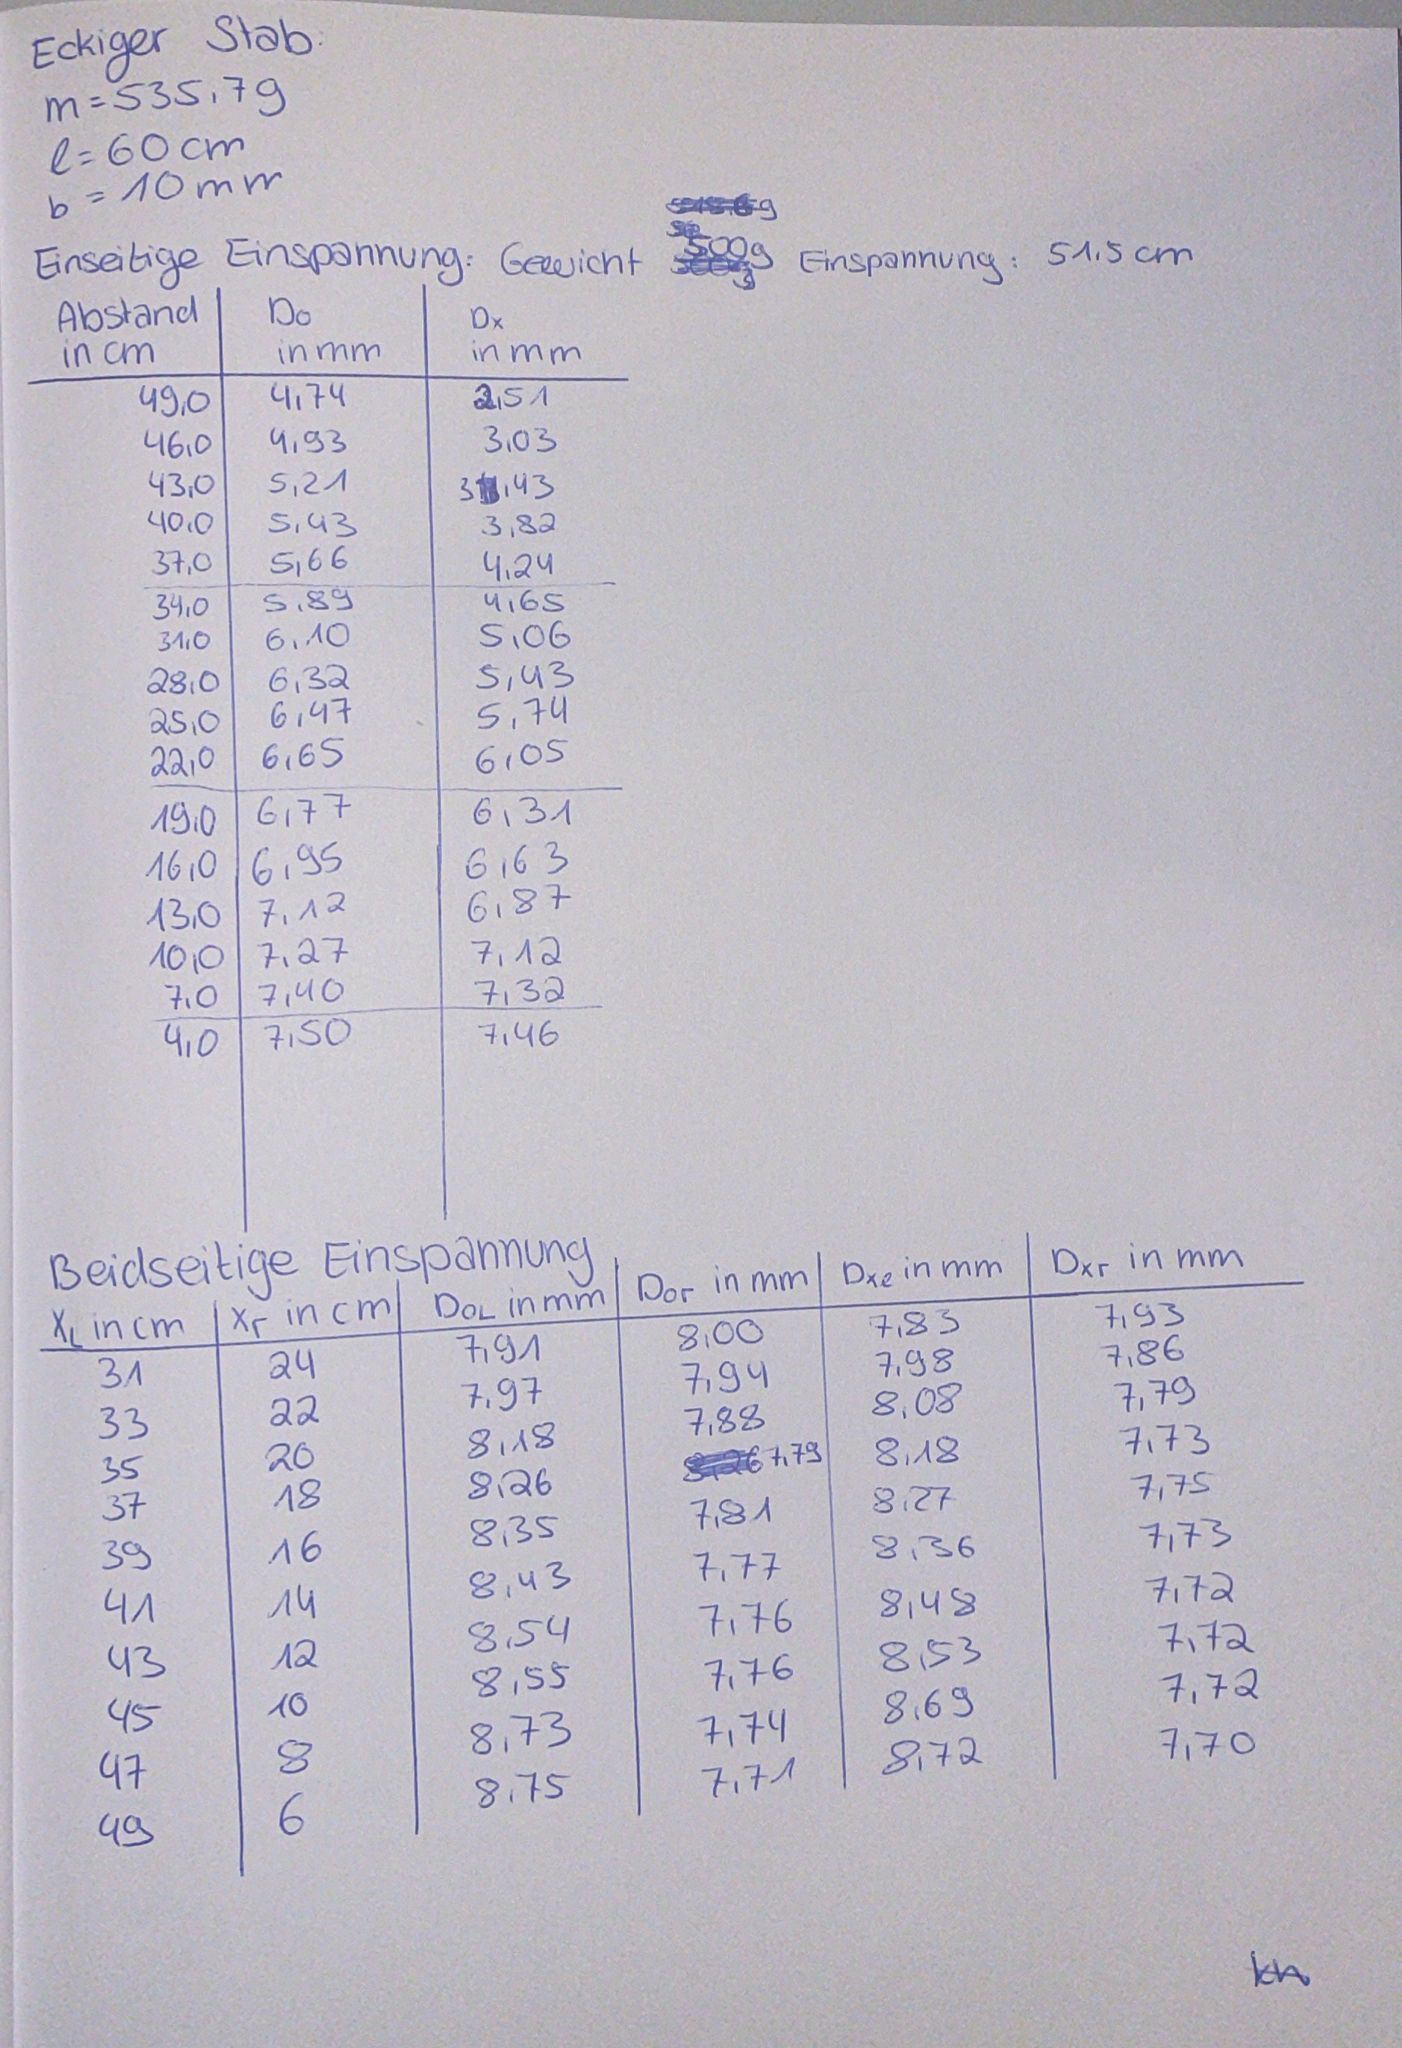 Eckiger Stab:
m = 535,7g
l = 60 cm
b = 10 mm
Einseitige Einspannung: Gewicht 500g Einspannung: 51,5 cm
Abstand in cm | D0 in mm | Dx in mm
49,0 | 4,74 | 2,51
46,0 | 4,93 | 3,03
43,0 | 5,21 | 3,43
40,0 | 5,43 | 3,82
37,0 | 5,66 | 4,24
34,0 | 5,89 | 4,65
31,0 | 6,10 | 5,06
28,0 | 6,32 | 5,43
25,0 | 6,47 | 5,74
22,0 | 6,65 | 6,05
19,0 | 6,77 | 6,31
16,0 | 6,95 | 6,63
13,0 | 7,12 | 6,87
10,0 | 7,27 | 7,12
7,0 | 7,40 | 7,32
4,0 | 7,50 | 7,46
Beidseitige Einspannung
XL in cm | Xr in cm | D0L in mm | D0r in mm | Dxl in mm | Dxr in mm
31 | 24 | 7,91 | 8,00 | 7,83 | 7,93
33 | 22 | 7,97 | 7,94 | 7,98 | 7,86
35 | 20 | 8,18 | 7,88 | 8,08 | 7,79
37 | 18 | 8,26 | 7,79 | 8,18 | 7,73
39 | 16 | 8,35 | 7,81 | 8,27 | 7,75
41 | 14 | 8,43 | 7,77 | 8,36 | 7,73
43 | 12 | 8,54 | 7,76 | 8,48 | 7,72
45 | 10 | 8,55 | 7,76 | 8,53 | 7,72
47 | 8 | 8,73 | 7,74 | 8,69 | 7,72
49 | 6 | 8,75 | 7,71 | 8,72 | 7,70